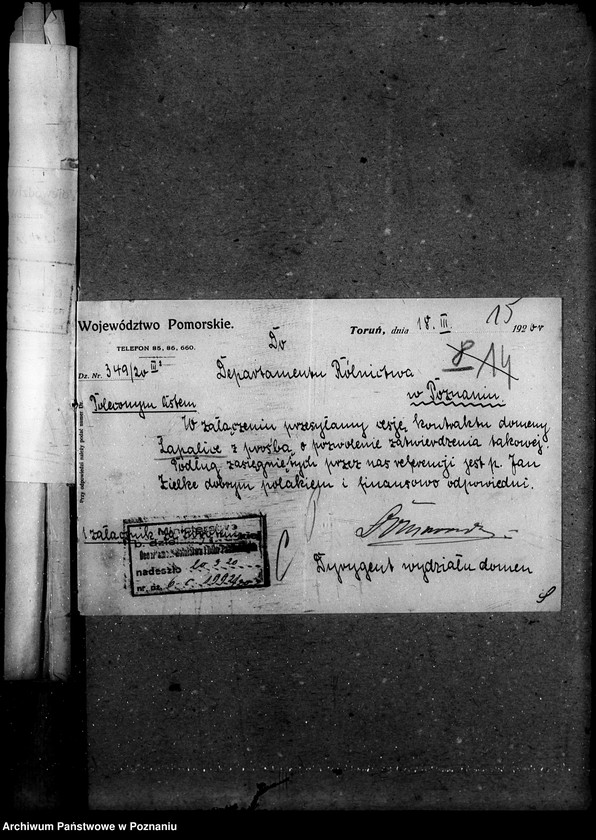 15
Województwo Pomorskie.
Toruń, dnia 18. III. 1920 r
TELEFON 85, 86, 660.
Do
8 14
Dz. Nr. 349/20 III
Departamentu Rólnictwa
w Poznaniu.
Poleconym listem
W załączeniu przesyłamy cesję kontraktu domeny
Łapalice z prośbą o pozwolenie zatwierdzenia takowej.
Podług zasięgniętych przez nas referencji jest p. Jan
Zielke dobrym polakiem i finansowo odpowiedni.
Przy odpowiedzi należy podać numer Dz.
1 załącznik
Ministerstwo
nadeszło 20.3.20
nr. dz.
Dyrygent wydziału domen
Archiwum Państwowe w Poznaniu